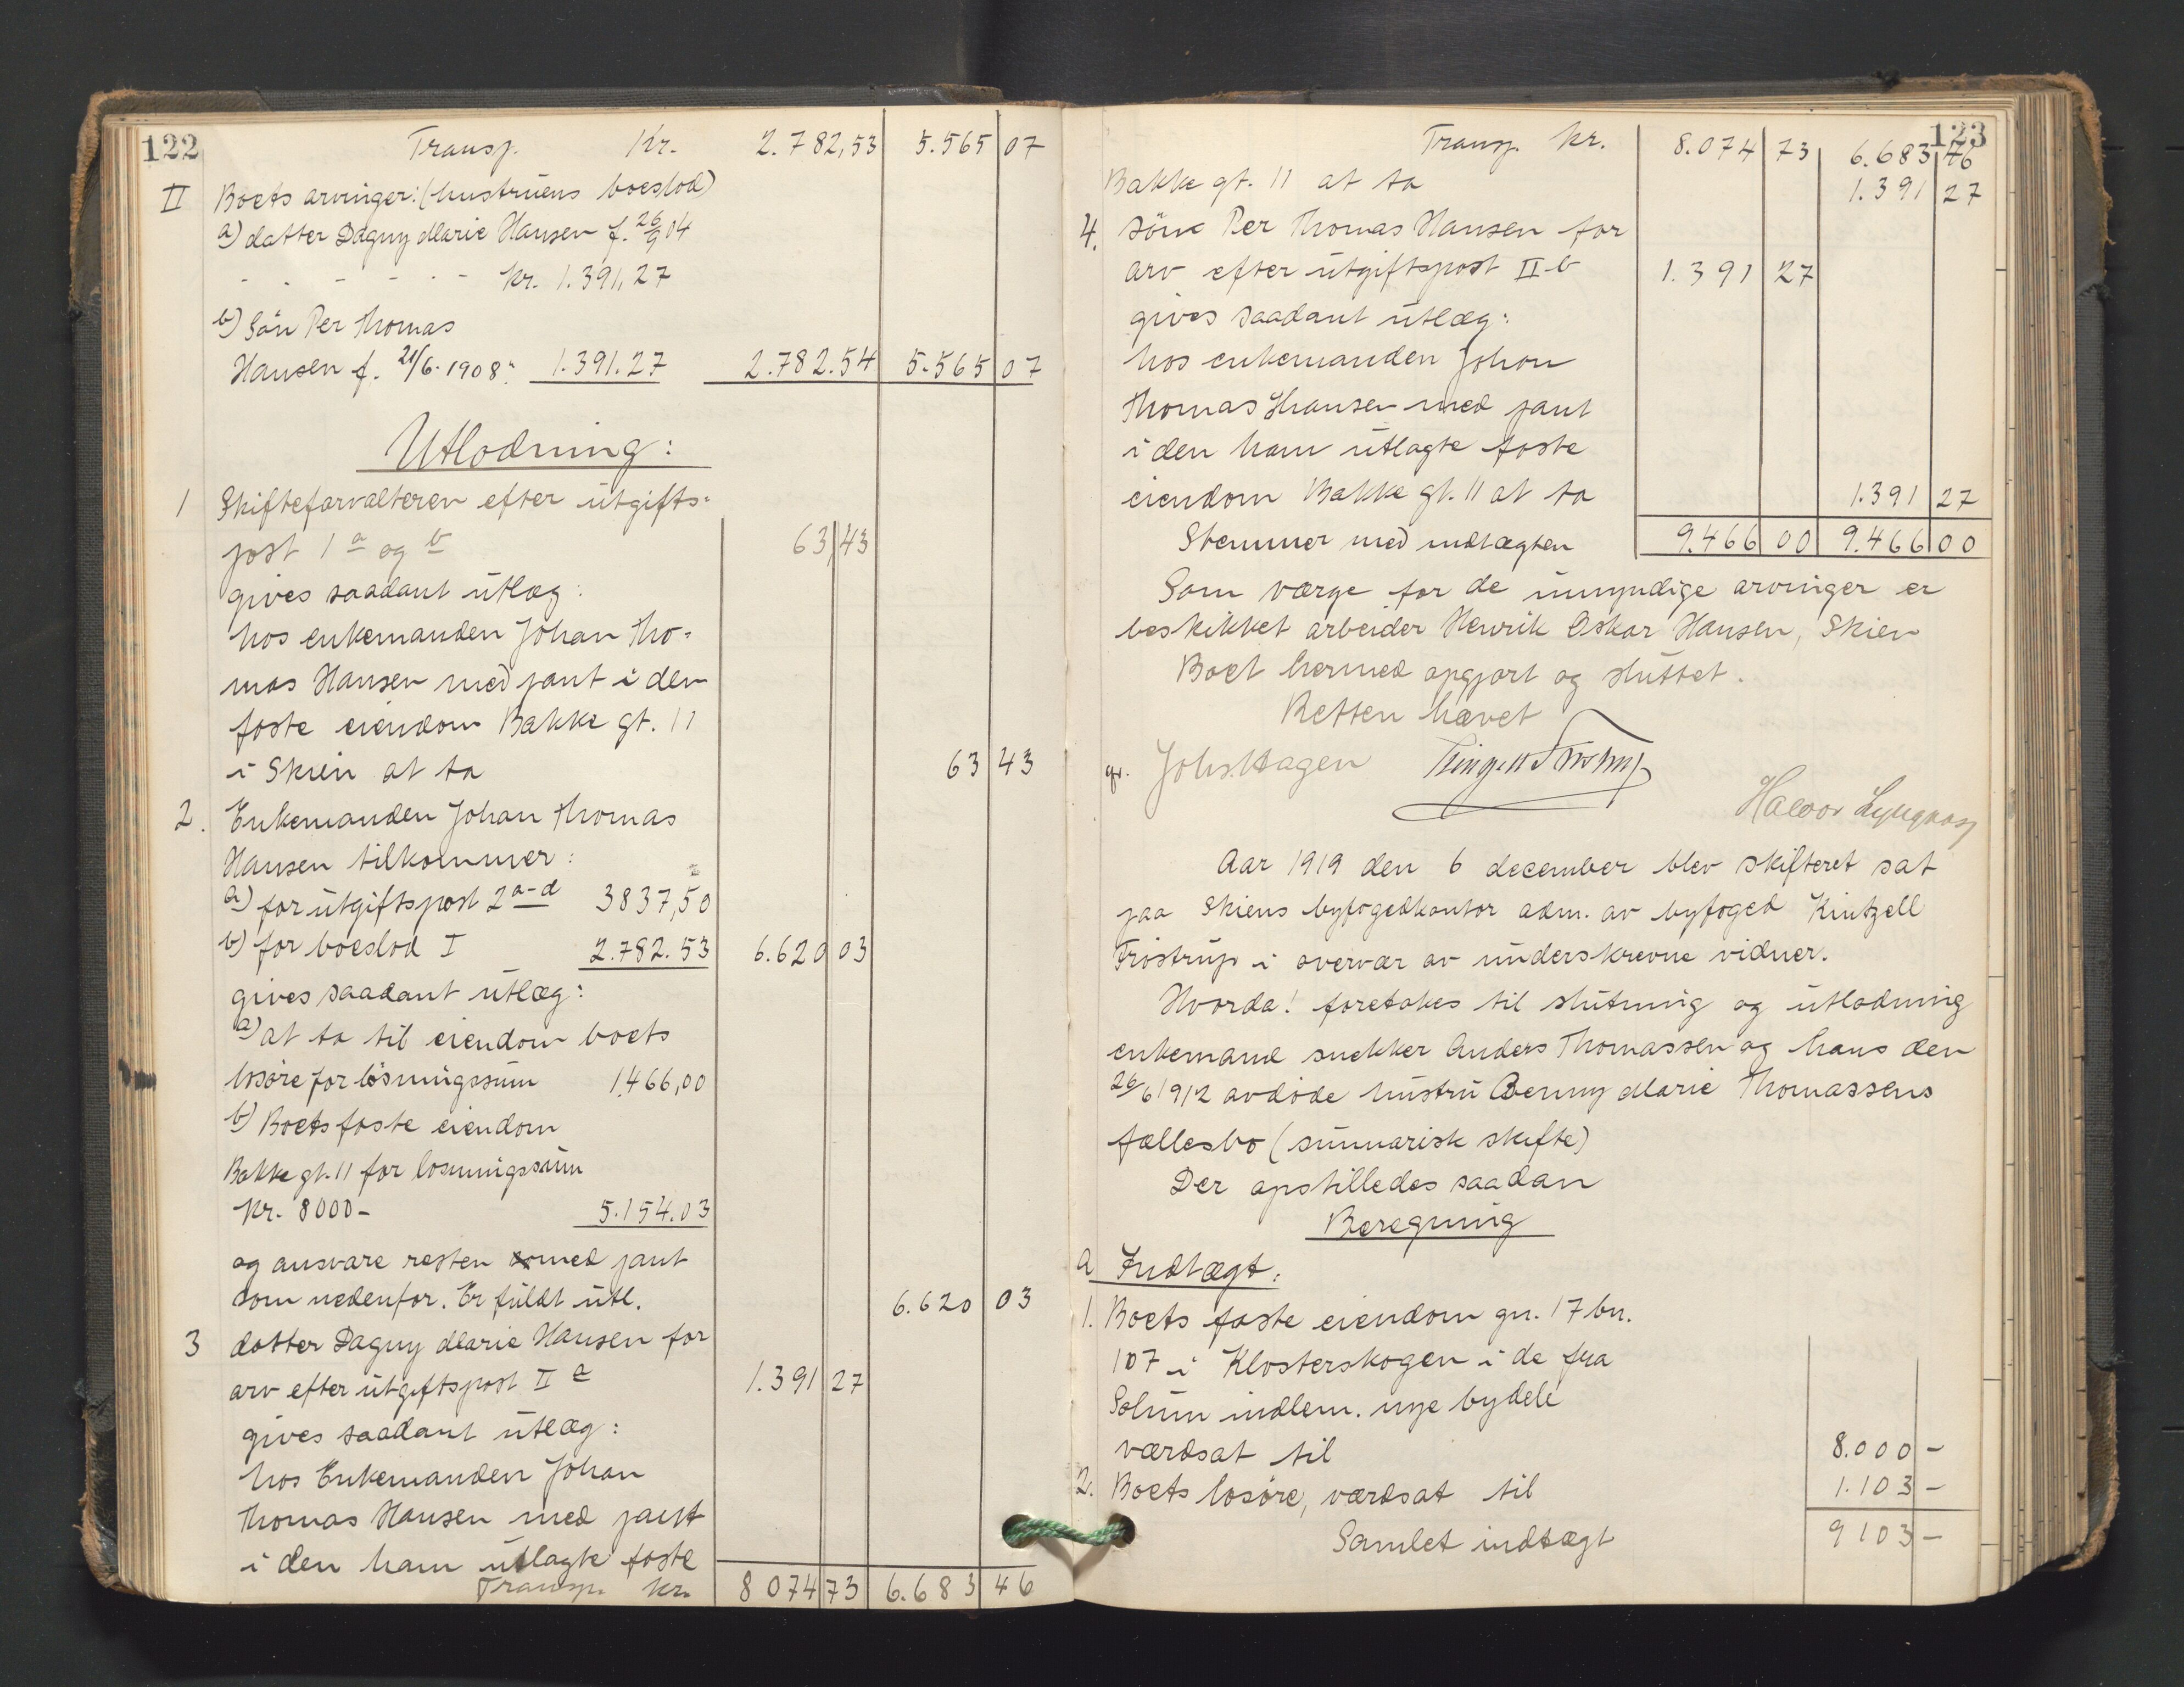 122
Transp. Kr. 2.782,53 5.565 07
II Boets arvinger: (hustruens boeslod)
a) datter Dagny Marie Hansen f. 26/9 04
- - - - - - kr. 1.391,27
b) Sön Per Thomas
Hansen f. 21/6. 1908: 1.391.27 2.782.54 5.565 07
Utlodning:
1 Skifteforvalteren efter utgifts=
post 1 a og b 63 43
gives saadant utlæg:
hos enkemanden Johan Tho=
mas Hansen med pant i den
faste eiendom Bakke gt. 11
i Skien at ta 63 43
2. Enkemanden Johan Thomas
Hansen tilkommer:
a) for utgiftspost 2 a-d 3837,50
b) for boeslod I 2.782.53 6.620 03
gives saadant utlæg:
a) at ta til eiendom boets
lösöre for lösningssum 1.466,00
b) Boets faste eiendom
Bakke gt. 11 for losningssum
Kr. 8000- 5.154.03
og ansvare resten med pant
som nedenfor. Er fuldt utl. 6.620 03
3 datter Dagny Marie Hansen for
arv efter utgiftspost II a 1.391 27
gives saadant utlæg:
hos Enkemanden Johan
Thomas Hansen med pant
i den ham utlagte faste
Transp. kr. 8074 73 6.683 46
123
Transp. kr. 8.074 73 6.683 46
Bakke gt. 11 at ta 1.391 27
4. Sönn Per Thomas Hansen for
arv efter utgiftspost II b 1.391 27
gives saadant utlæg:
hos enkemanden Johan
Thomas Hansen med pant
i den ham utlagte faste
eiendom Bakke gt. 11 at ta 1.391 27
Stemmer med indtægten 9.466 00 9.466 00
Som værge for de umyndige arvinger er
beskikket arbeider Henrik Oskar Hansen, Skien
Boet hermed opgjort og sluttet.
Retten hævet
Johs. Hagen Kintzell Frostrup
Halvor
Aar 1919 den 6 december blev skifteret sat
paa Skiens byfogedkontor adm. av byfoged Kintzell
Fröstrup i overvær av underskrevne vidner.
Hvorda! foretokes til slutning og utlodning
enkemand snekker Anders Thomassen og hans den
26/6 1912 avdöde hustru Benny Marie Thomassens
fællesbo (summarisk skifte)
Der opstilledes saadan
Beregning
a Indtægt:
1. Boets faste eiendom gn. 17 bn.
107 i Klosterskogen i de fra
Solum indlem. nye bydele
værdsat til 8.000 -
2. Boets losöre, værdsat til 1.103 -
Samlet indtægt 9103 -